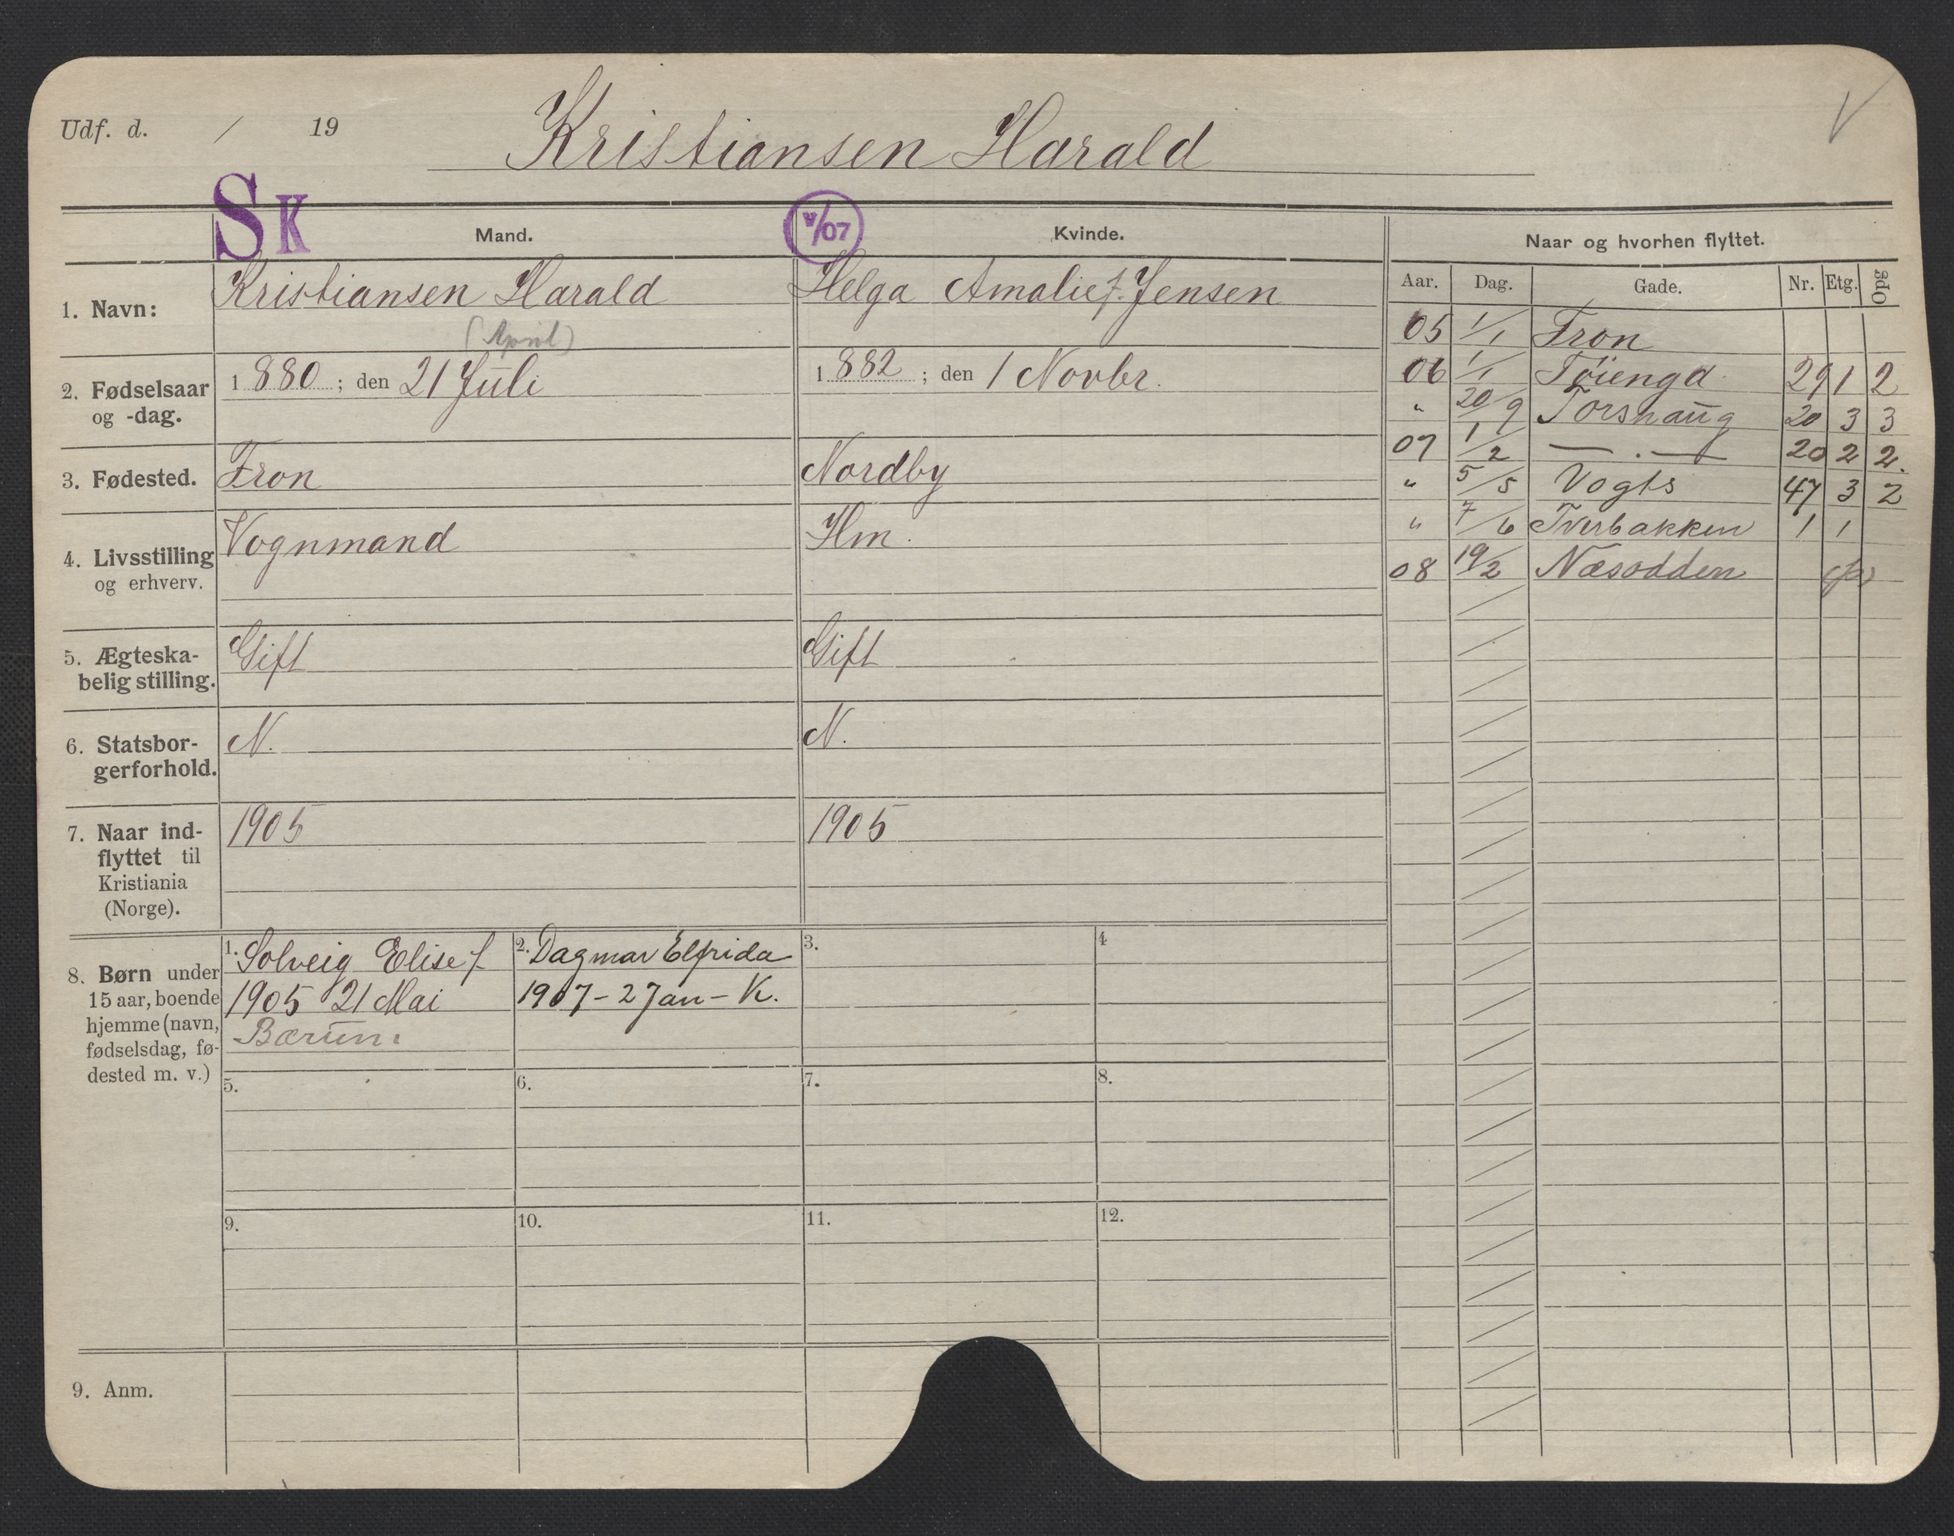 Udf. d. / 19
Kristiansen Harald
V
SK
V/07
Mand.
Kvinde.
Naar og hvorhen flyttet.
Aar. Dag. Gade. Nr. Etg. Opg
1. Navn: Kristiansen Harald
Helga Amalie f. Jensen
(April)
2. Fødselsaar og -dag.
1880; den 21 Juli
1882; den 1 Novbr.
3. Fødested. Fron
Nordby
4. Livsstilling og erhverv.
Vognmand
Hm.
5. Ægteska-
belig stilling.
Gift
Gift
6. Statsbor-
gerforhold.
N.
N.
7. Naar ind-
flyttet til
Kristiania
(Norge).
1905
1905
8. Børn under
15 aar, boende
hjemme (navn,
fødselsdag, fø-
dested m. v.)
1. Solveig Elise f
1905 21 Mai
Bærum.
2. Dagmar Elfrida
1907 - 2 Jan - K.
3.
4
5.
6.
7.
8.
9.
10.
11.
12.
9. Anm.
05 1/1 Fron
06 1/1 Tøiengd. 29 1 2
" 20/9 Torshaug 20 3 3
07 1/2 — . — 20 2 2.
" 5/5 Vogts 47 3 2
" 7/6 Tverbakken 1 1
08 19/2 Næsodden